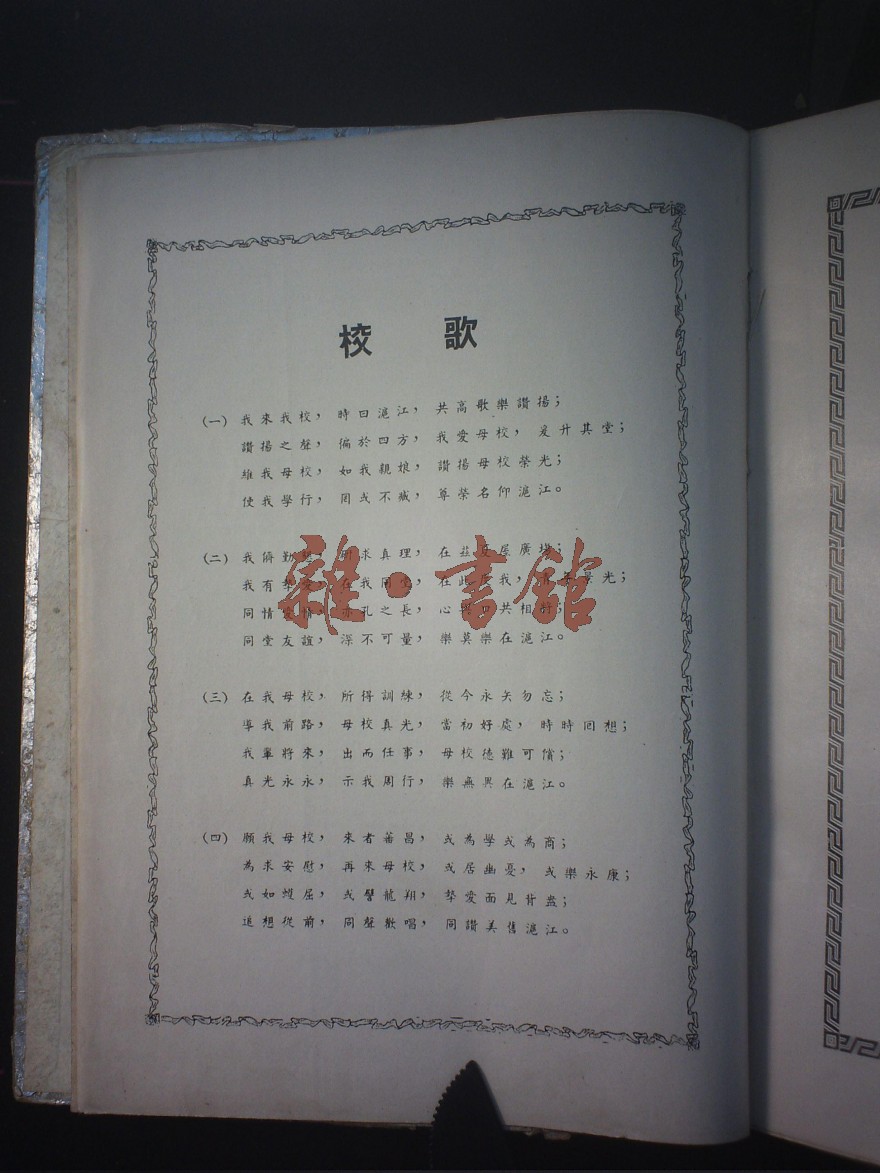 校歌
(一) 我來我校，時曰滬江，共高歌樂讚揚；
讚揚之聲，偏於四方，我愛母校，爰升其堂；
維我母校，如我親娘，讚揚母校榮光；
使我學行，罔或不臧，尊榮名仰滬江。
(二) 我儕勤，求真理，在茲屋廣場；
我有摯愛，在我同堂，在此我，景光；
同情，孔之長，心與共相；
同堂友誼，深不可量，樂莫樂在滬江。
(三) 在我母校，所得訓練，從今永矢勿忘；
導我前路，母校真光，當初好處，時時回想；
我輩將來，出而任事，母校德難可償；
真光永永，示我周行，樂無異在滬江。
(四) 願我母校，來者蕃昌，或為學或為商；
為求安慰，再來母校，或居幽憂，或樂永康；
或如蠖屈，或譬龍翔，摯愛面見背盎；
追想從前，同聲歡唱，同讚美舊滬江。
雜·書館